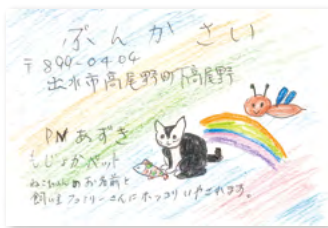 ぶんかさい
〒899-0404
出水市高尾野町下高尾野
PN あずき
もじょかペット
ねこちゃんのお名前と
飼い主ファミリーさんにホッコリいやされます。